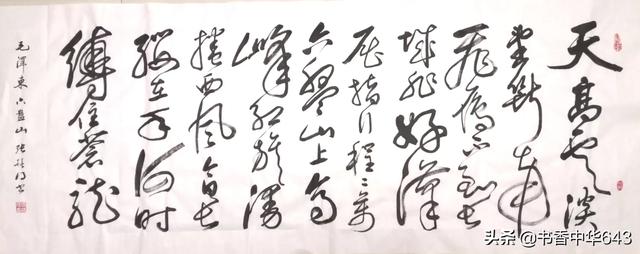 天高云淡
望断南
飛雁不到长
城非好漢
屈指行程二万
六盘山上高
峰红旗漫
捲西风今日长
缨在手何时
縛住蒼龙
毛澤東六盘山 张
头条 @书香中华643